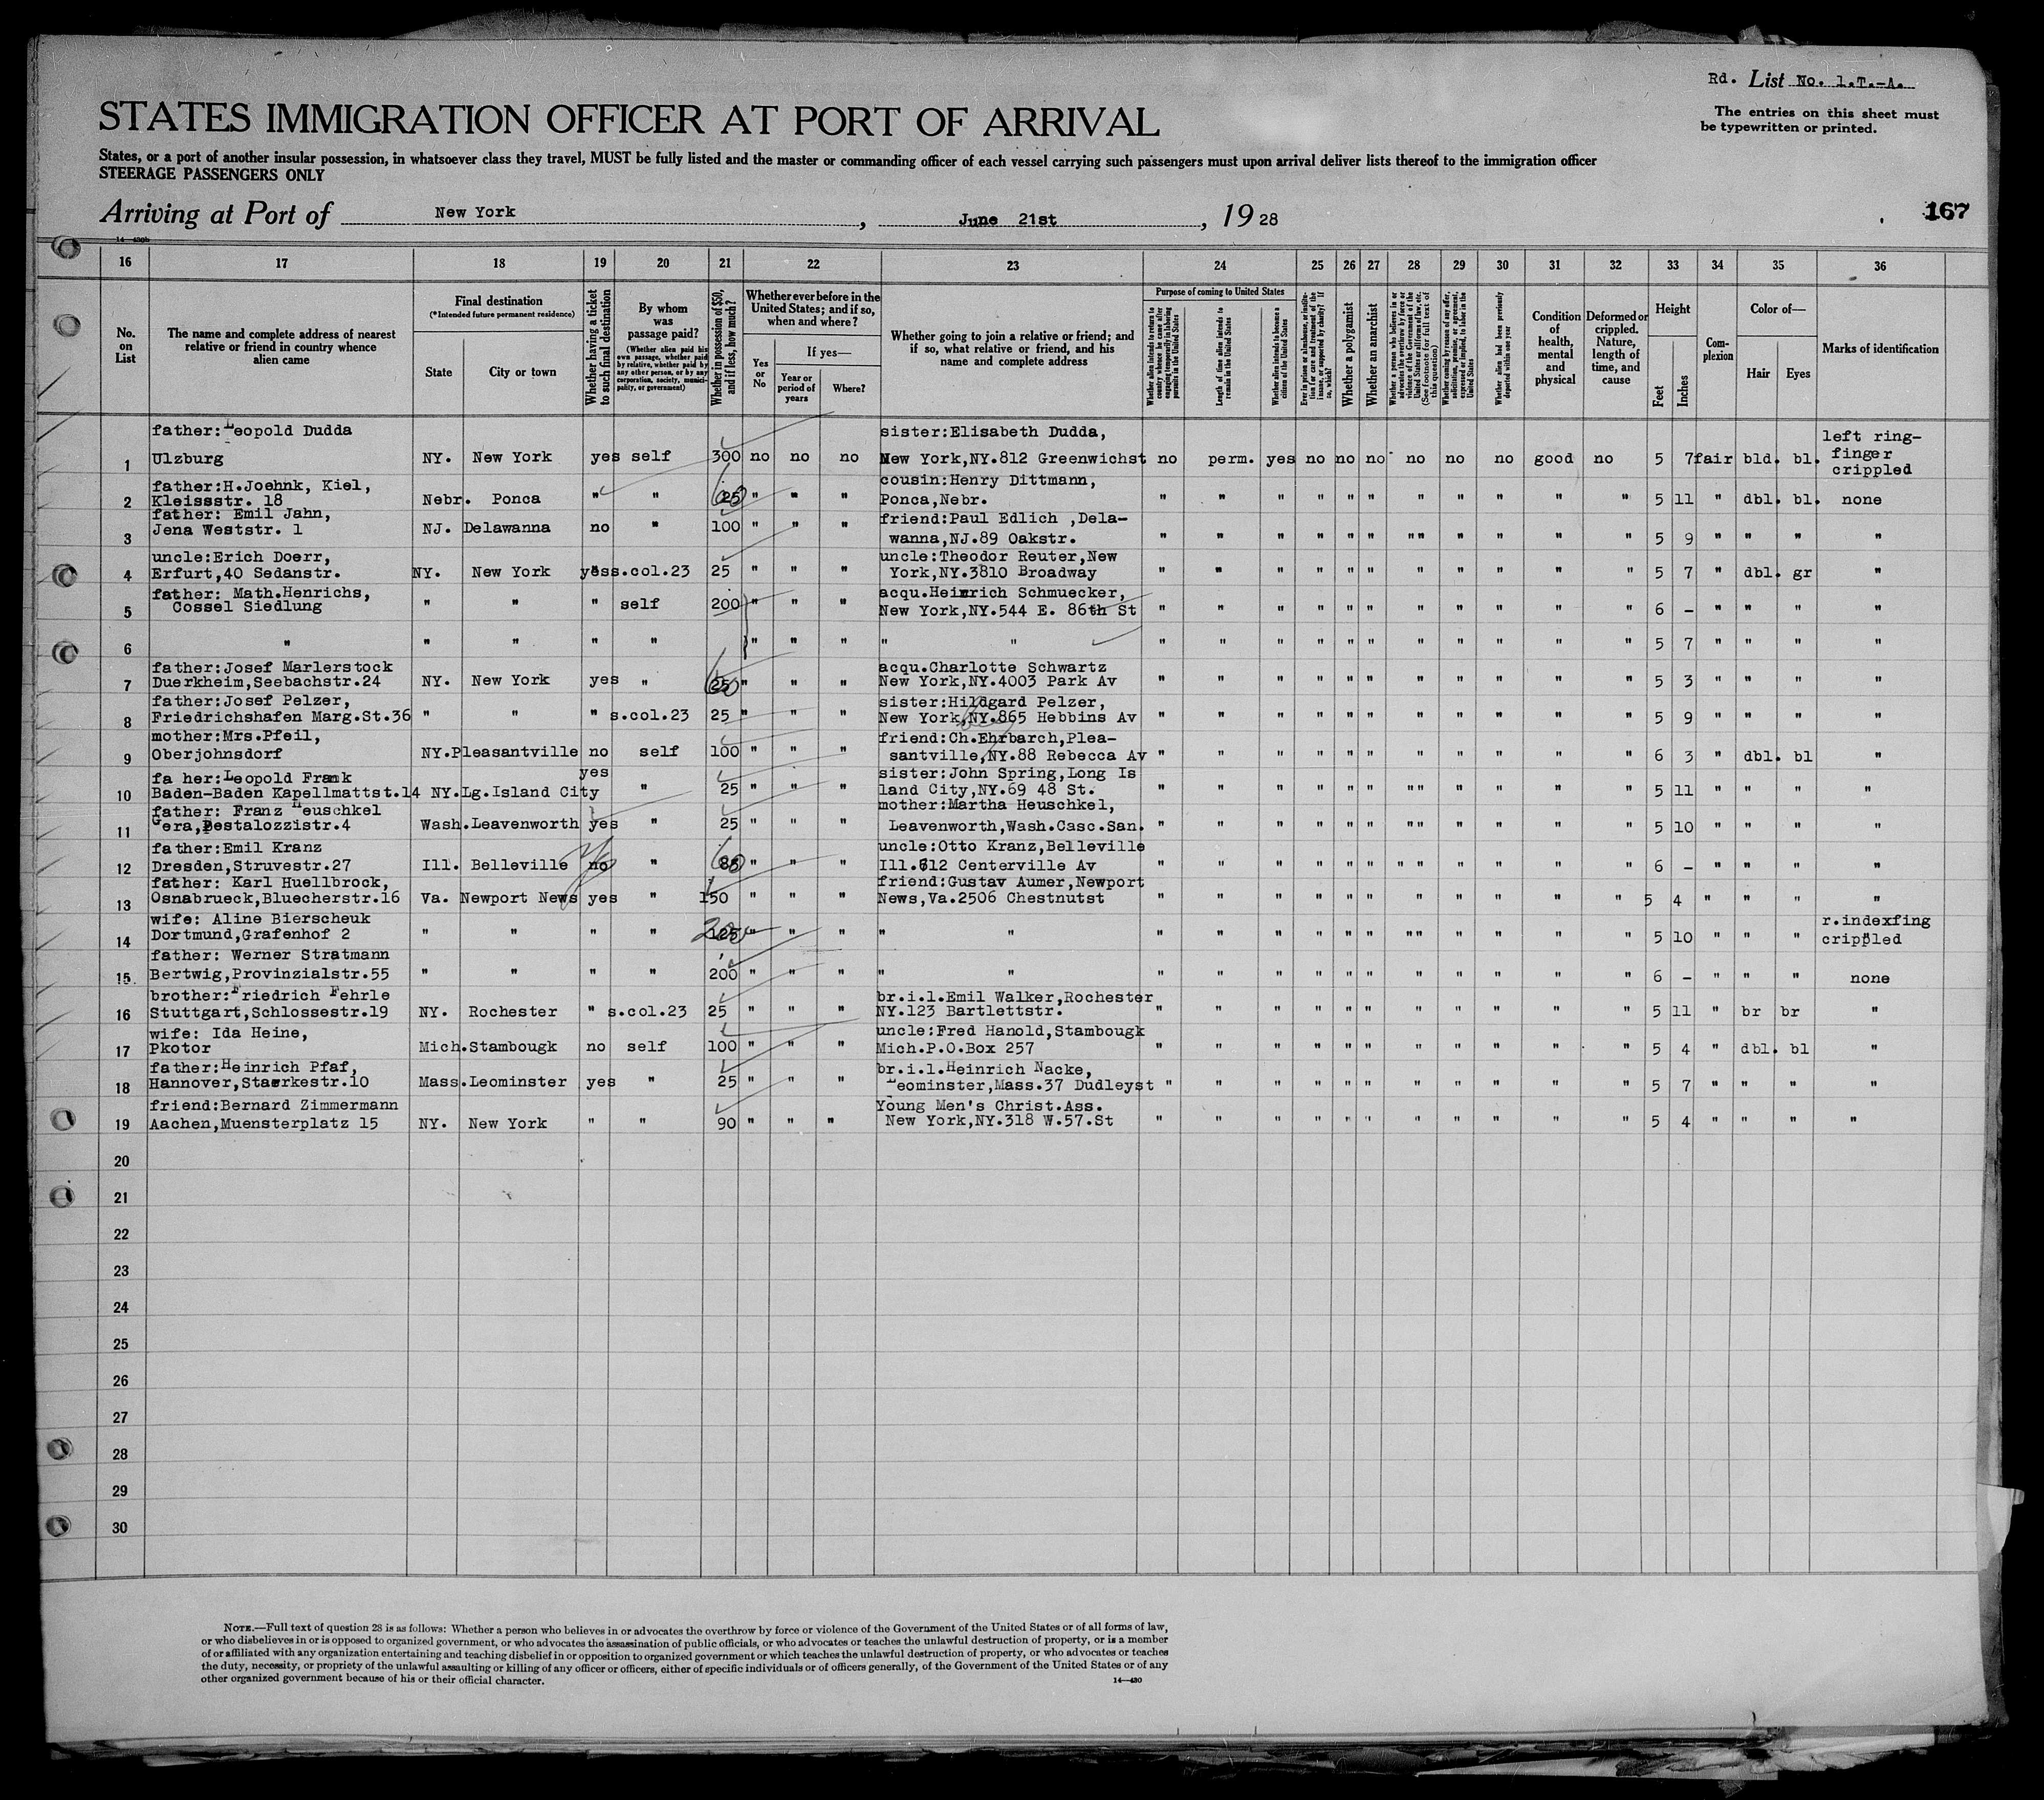 Rd. List No. 1.T.-A.
The entries on this sheet must
be typewritten or printed.
STATES IMMIGRATION OFFICER AT PORT OF ARRIVAL
States, or a port of another insular possession, in whatsoever class they travel, MUST be fully listed and the master or commanding officer of each vessel carrying such passengers must upon arrival deliver lists thereof to the immigration officer
STEERAGE PASSENGERS ONLY
Arriving at Port of New York, June 21st, 1928
167
16 17 18 19 20 21 22 23 24 25 26 27 28 29 30 31 32 33 34 35 36
No. on List
The name and complete address of nearest relative or friend in country whence alien came
Final destination
(*Intended future permanent residence)
State
City or town
Whether having a ticket to such final destination
By whom was passage paid?
(Whether alien paid his own passage, whether paid by relative, whether paid by any other person, or by any corporation, society, municipality, or government)
Whether in possession of $50, and if less, how much?
Whether ever before in the United States; and if so, when and where?
Yes or No
If yes—
Year or period of years
Where?
Whether going to join a relative or friend; and if so, what relative or friend, and his name and complete address
Purpose of coming to United States
Length of time alien intends to remain in the United States
Whether alien intends to become a citizen of the United States
Whether a polygamist
Whether an anarchist
Whether alien had been previously deported within one year
Condition of health, mental and physical
Deformed or crippled. Nature, length of time, and cause
Height
Feet
Inches
Complexion
Color of—
Hair
Eyes
Marks of identification
father:Leopold Dudda sister:Elisabeth Dudda, left ring-
1 Ulzburg NY. New York yes self 300 no no no New York,NY.812 Greenwichst no perm. yes no no no no no no good no 5 7 fair bld. bl. finger
crippled
father:H.Joehnk, Kiel, cousin:Henry Dittmann,
2 Kleissstr. 18 Nebr. Ponca " " 25 " " " Ponca,Nebr. " " " " " " " " " " " 5 11 " dbl. bl. none
father: Emil Jahn, friend:Paul Edlich ,Dela-
3 Jena Weststr. 1 NJ. Delawanna no " 100 " " " wanna,NJ.89 Oakstr. " " " " " " "" " " " " 5 9 " " " "
uncle:Erich Doerr, uncle:Theodor Reuter,New
4 Erfurt,40 Sedanstr. NY. New York yes s.col.23 25 " " " York,NY.3810 Broadway " " " " " " " " " " " 5 7 " dbl. gr "
father: Math.Henrichs, acqu.Heinrich Schmuecker,
5 Cossel Siedlung " " " self 200 " " " New York,NY.544 E. 86th St " " " " " " " " " " " 6 - " " " "
6 " " " " " " " " " " " " " " " " " " " " " 5 7 " " " "
father:Josef Marlerstock acqu.Charlotte Schwartz
7 Duerkheim,Seebachstr.24 NY. New York yes " 25 " " " New York,NY.4003 Park Av " " " " " " " " " " " 5 3 " " " "
father:Josef Pelzer, sister:Hildgard Pelzer,
8 Friedrichshafen Marg.St.36 " " " s.col.23 25 " " " New York,NY.865 Hebbins Av " " " " " " " " " " " 5 9 " " " "
mother:Mrs.Pfeil, friend:Ch.Ehrbarch,Plea-
9 Oberjohnsdorf NY.Pleasantville no self 100 " " " santville,NY.88 Rebecca Av " " " " " " " " " " " 6 3 " dbl. bl "
fa her:Leopold Frank yes sister:John Spring,Long Is
10 Baden-Baden Kapellmattst.14 NY.Lg.Island City " 25 " " " land City,NY.69 48 St. " " " " " " "" " " " " 5 11 " " " "
father: Franz Heuschkel mother:Martha Heuschkel,
11 Gera,Pestalozzistr.4 Wash.Leavenworth yes " 25 " " " Leavenworth,Wash.Casc.San. " " " " " " "" " " " " 5 10 " " " "
father:Emil Kranz uncle:Otto Kranz,Belleville
12 Dresden,Struvestr.27 Ill. Belleville no " " " " Ill.612 Centerville Av " " " " " " " " " " " " 6 - " " " "
father: Karl Huellbrock, friend:Gustav Aumer,Newport
13 Osnabrueck,Bluecherstr.16 Va. Newport News yes " 150 " " " News,Va.2506 Chestnutst " " " " " " " " " " " 5 4 " " " "
wife: Aline Bierscheuk r.indexfing
14 Dortmund,Grafenhof 2 " " " " 125 " " " " " " " " " " " "" " " " " 5 10 " " " crippled
father: Werner Stratmann
15 Bertwig,Provinzialstr.55 " " " " 200 " " " " " " " " " " " " " " " " 6 - " " " none
brother:Friedrich Fehrle br.i.l.Emil Walker,Rochester
16 Stuttgart,Schlossestr.19 NY. Rochester " s.col.23 25 " " " NY.123 Bartlettstr. " " " " " " " " " " " 5 11 " br br "
wife: Ida Heine, uncle:Fred Hanold,Stambougk
17 Pkotor Mich.Stambougk no self 100 " " " Mich.P.O.Box 257 " " " " " " " " " " " 5 4 " dbl. bl "
father:Heinrich Pfaf, br.i.l.Heinrich Nacke,
18 Hannover,Staerkestr.10 Mass.Leominster yes " 25 " " " Leominster,Mass.37 Dudleyst " " " " " " " " " " " 5 7 " " " "
friend:Bernard Zimmermann Young Men's Christ.Ass.
19 Aachen,Muensterplatz 15 NY. New York " " 90 " " " New York,NY.318 W.57.St " " " " " " " " " " " 5 4 " " " "
20
21
22
23
24
25
26
27
28
29
30
NOTE.—Full text of question 28 is as follows: Whether a person who believes in or advocates the overthrow by force or violence of the Government of the United States or of all forms of law,
or who disbelieves in or is opposed to organized government, or who advocates the assassination of public officials, or who advocates or teaches the unlawful destruction of property, or is a member
of or affiliated with any organization entertaining and teaching disbelief in or opposition to organized government or which teaches the unlawful destruction of property, or who advocates or teaches
the duty, necessity, or propriety of the unlawful assaulting or killing of any officer or officers, either of specific individuals or of officers generally, of the Government of the United States or of any
other organized government because of his or their official character.
14—430